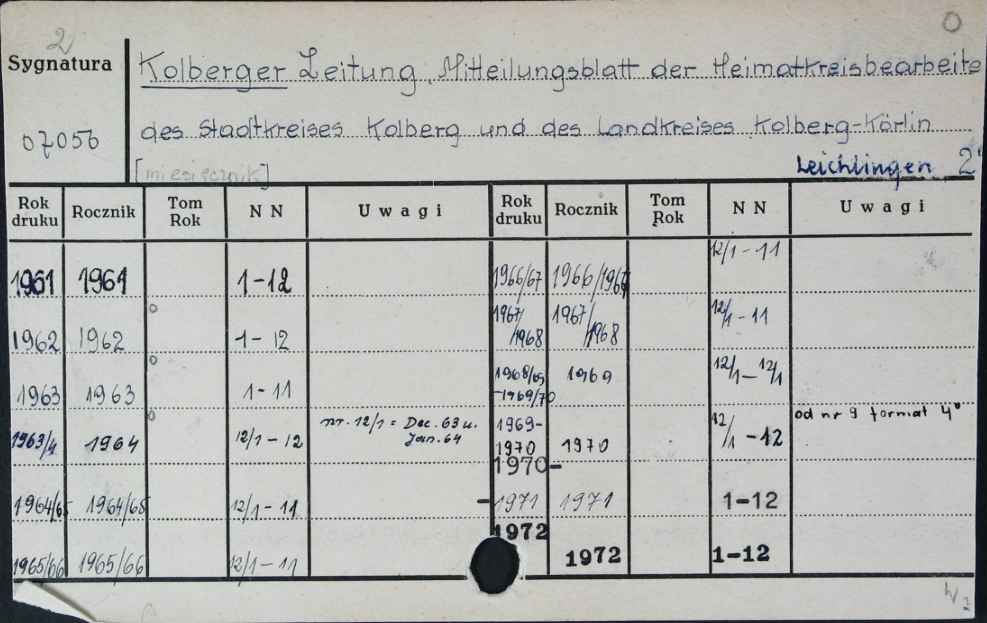 2 O
Sygnatura Kolberger Zeitung. Mitteilungsblatt der Heimatkreisbearbeite
07056 des Stadtkreises Kolberg und des Landkreises Kolberg-Körlin
[miesięcznik] Leichlingen 2°
Rok druku Rocznik Tom Rok NN Uwagi Rok druku Rocznik Tom Rok NN Uwagi
1961 1961 1-12 1966/67 1966/1967 12/1-11
1962 1962 1-12 1967/1968 1967/1968 12/1-11
1963 1963 1-11 1968/69-1969/70 1969 12/1-12/1
1963/4 1964 12/1-12 nr. 12/1 = Dec. 63 u. Jan. 64 1969-1970 1970 12/1-12 od nr 9 format 4°
1964/65 1964/65 12/1-11 1970-1971 1971 1-12
1965/66 1965/66 12/1-11 1972 1972 1-12